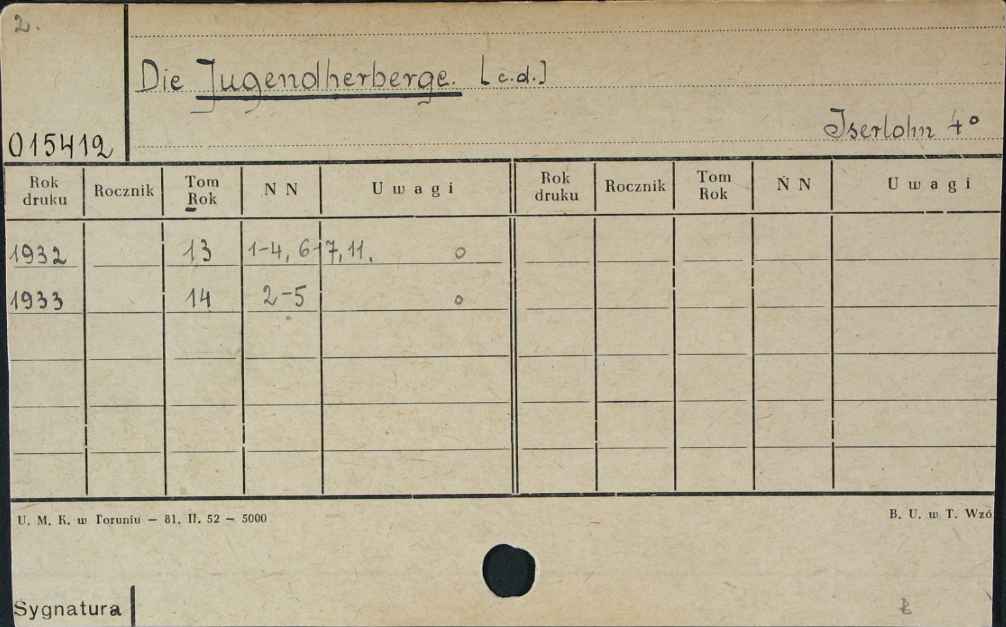 2.
Die Jugendherberge. [c.d.]
Iserlohn 4°
015412
Rok druku Rocznik Tom Rok N N Uwagi Rok druku Rocznik Tom Rok N N Uwagi
1932 13 1-4, 6-17, 11. o
1933 14 2-5 o
U. M. K. w Toruniu — 81. II. 52 — 5000
B. U. w T. Wzó
Sygnatura